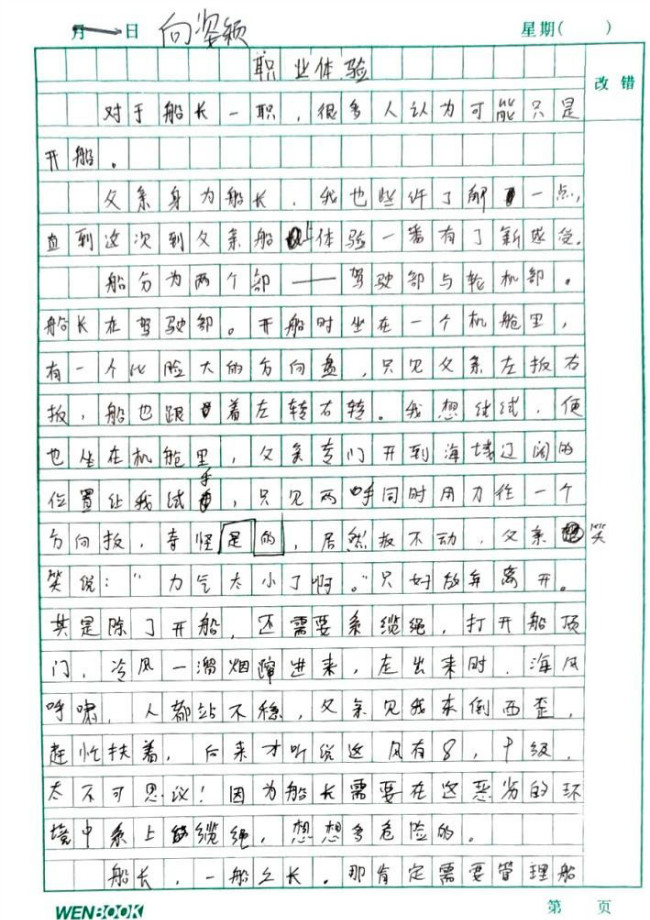 月 日 向姿颖 星期( )
职业体验
改错
对于船长一职，很多人认为可能只是
开船。
父亲身为船长，我也些许了解一点，
直到这次到父亲船上体验一番有了新感受。
船分为两个部——驾驶部与轮机部。
船长在驾驶部。开船时坐在一个机舱里，
有一个比脸大的方向盘，只见父亲左扳右
扳，船也跟着左转右转。我想试试，便
也坐在机舱里，父亲专门开到海域辽阔的
位置让我试手，只见两手同时用力往一个
方向扳，奇怪是的，居然扳不动，父亲笑
笑说：“力气太小了啊。”只好放弃离开。
其是除了开船，还需要系缆绳，打开船顶
门，冷风一溜烟蹿进来，走出来时，海风
呼啸，人都站不稳，父亲见我东倒西歪，
赶忙扶着，后来才听说这风有8，十级，
太不可思议！因为船长需要在这恶劣的环
境中系上缆绳，想想多危险的。
船长，一船之长。那肯定需要管理船
WENBOOK 第 页